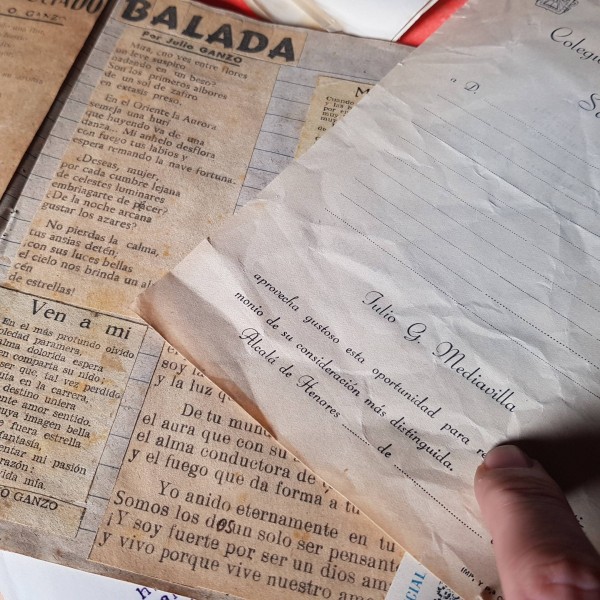 O GANZO
BALADA
Por Julio GANZO
Mira, cuo ves entre flores
un leve suspiro
nadando en un beso
Son los primeros albores
de un sol de zafiro
en extasis preso.
En el Oriente la Aurora
semeja una hurí
que huyendo va de una
danza... Mi anhelo desflora
con fuego tus labios y
espera remando la nave fortuna.
¿Deseas, mujer,
por cada cumbre lejana
de celestes luminares
embriagarte de pacer?
¿De la noche arcana
gustar los azares?
No pierdas la calma,
tus ansias detén,
con sus luces bellas
el cielo nos brinda un al
cén
de estrellas!
Ven a mi
En el más profundo olvido
oledad paramera,
alma dolorida espera
en comparta su nido;
ser que tal vez perdido
uía en la carrera,
destino uniera
ente amor sentido.
uya imagen bella
e fuera estrella
fantasía,
entar mi pasión
razón:
vida mía.
O GANZO
M
soy la
y la luz q
De tu mund
el aura que con su
el alma conductora de
y el fuego que da forma a tu
Yo anido eternamente en tu
Somos los dos un solo ser pensant
¡Y soy fuerte por ser un dios am
y vivo porque vive nuestro amo
Colegi
a D.
Julio G. Mediavilla
aprovecha gustoso esta oportunidad para re
monio de su consideración más distinguida.
Alcalá de Henares de
IMP. V
CIAL